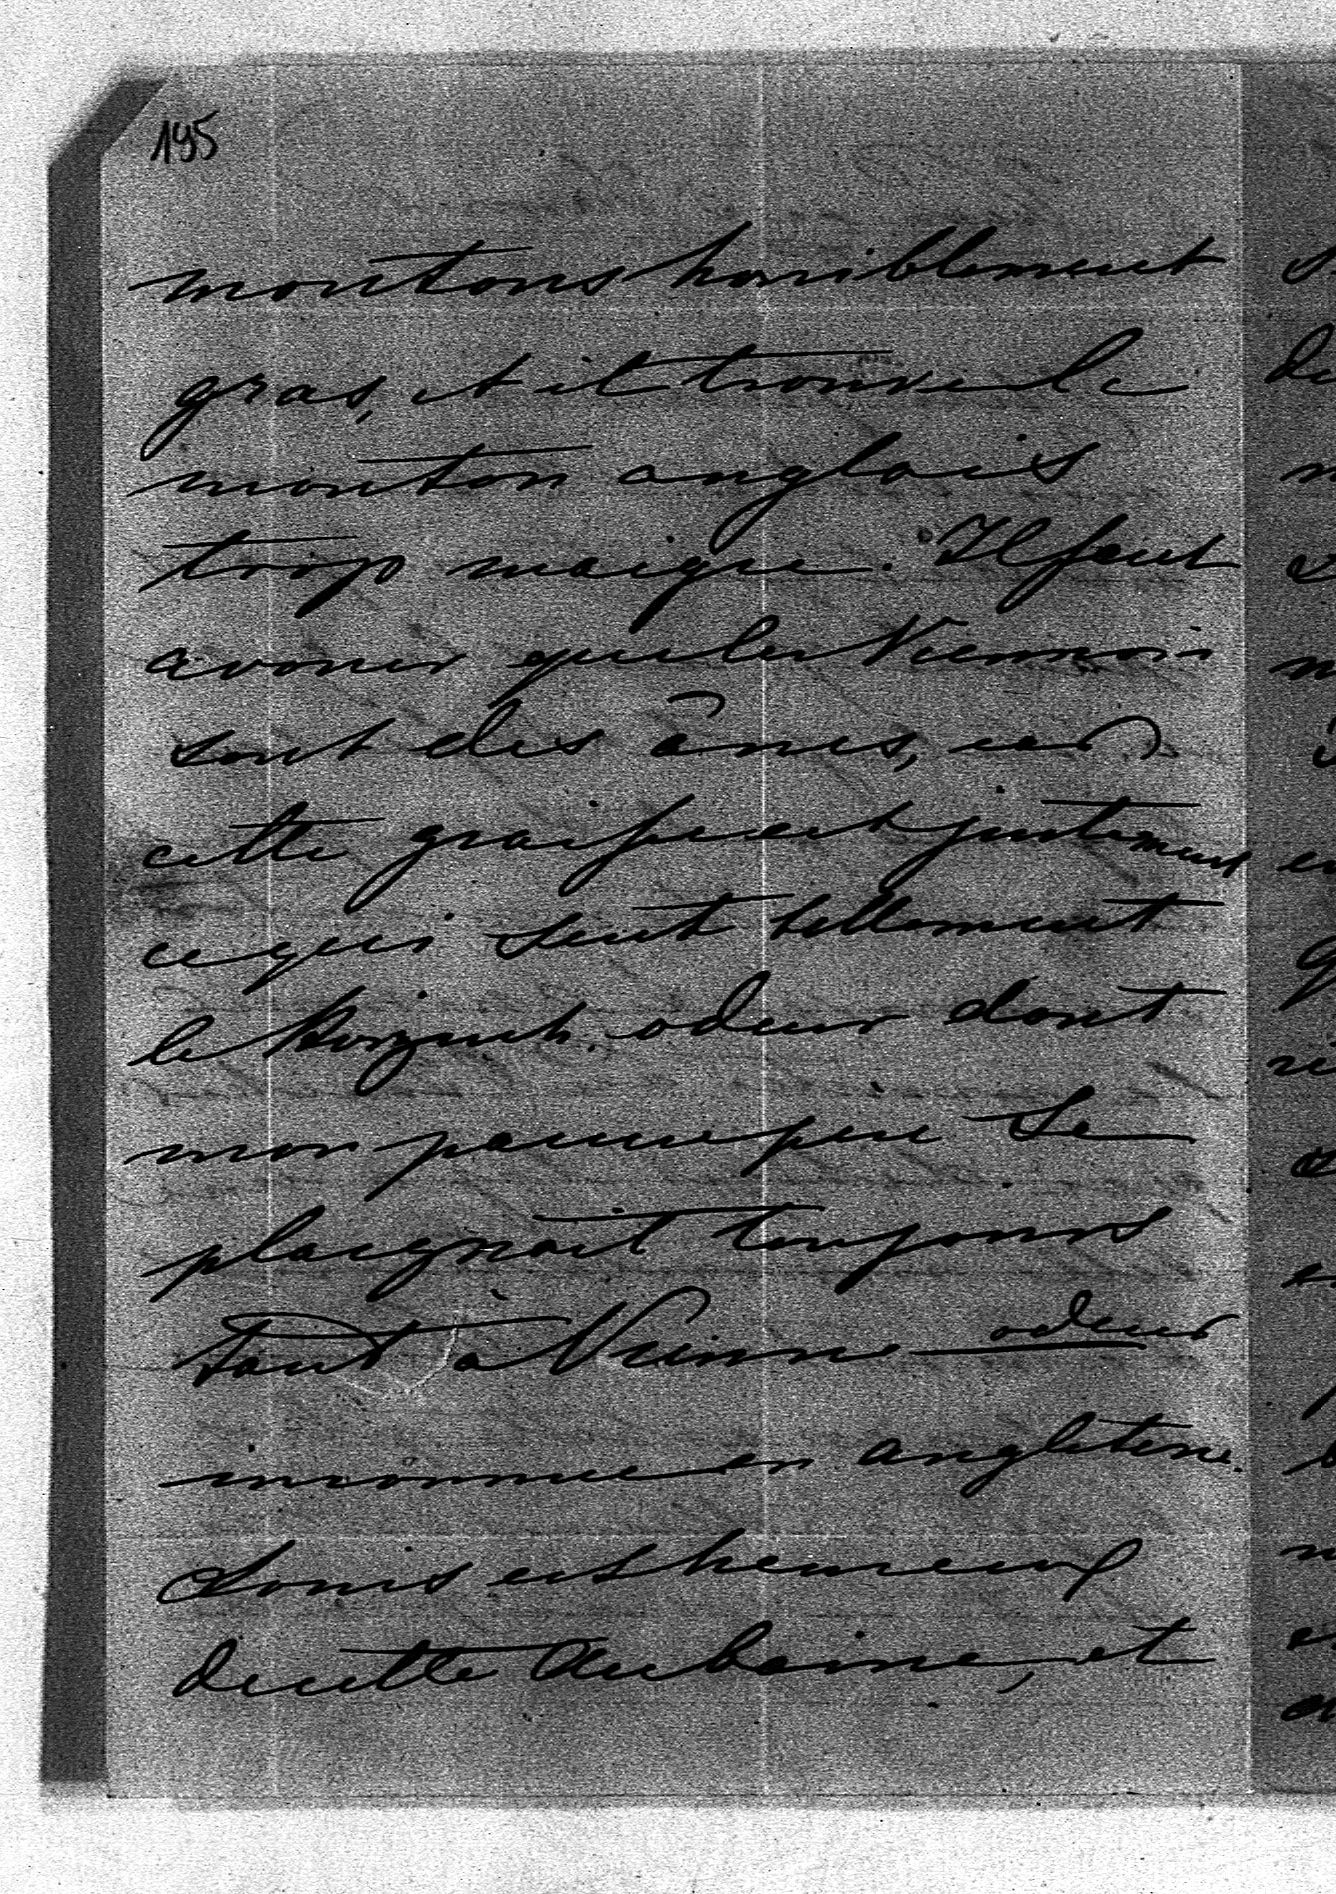 195
moutons horriblement
gras, et it trouve le
mouton anglais
trop maigre. Il faut
avouer que les Viennois
sont des ânes, car
cette graisse est justement
ce qui sent tellement
le odeur dont
mon pauvre père se
plaignait toujours
tant à Vienne odeur
inconnue en angleterre.
Louis est heureux
de cette Aubaine, et